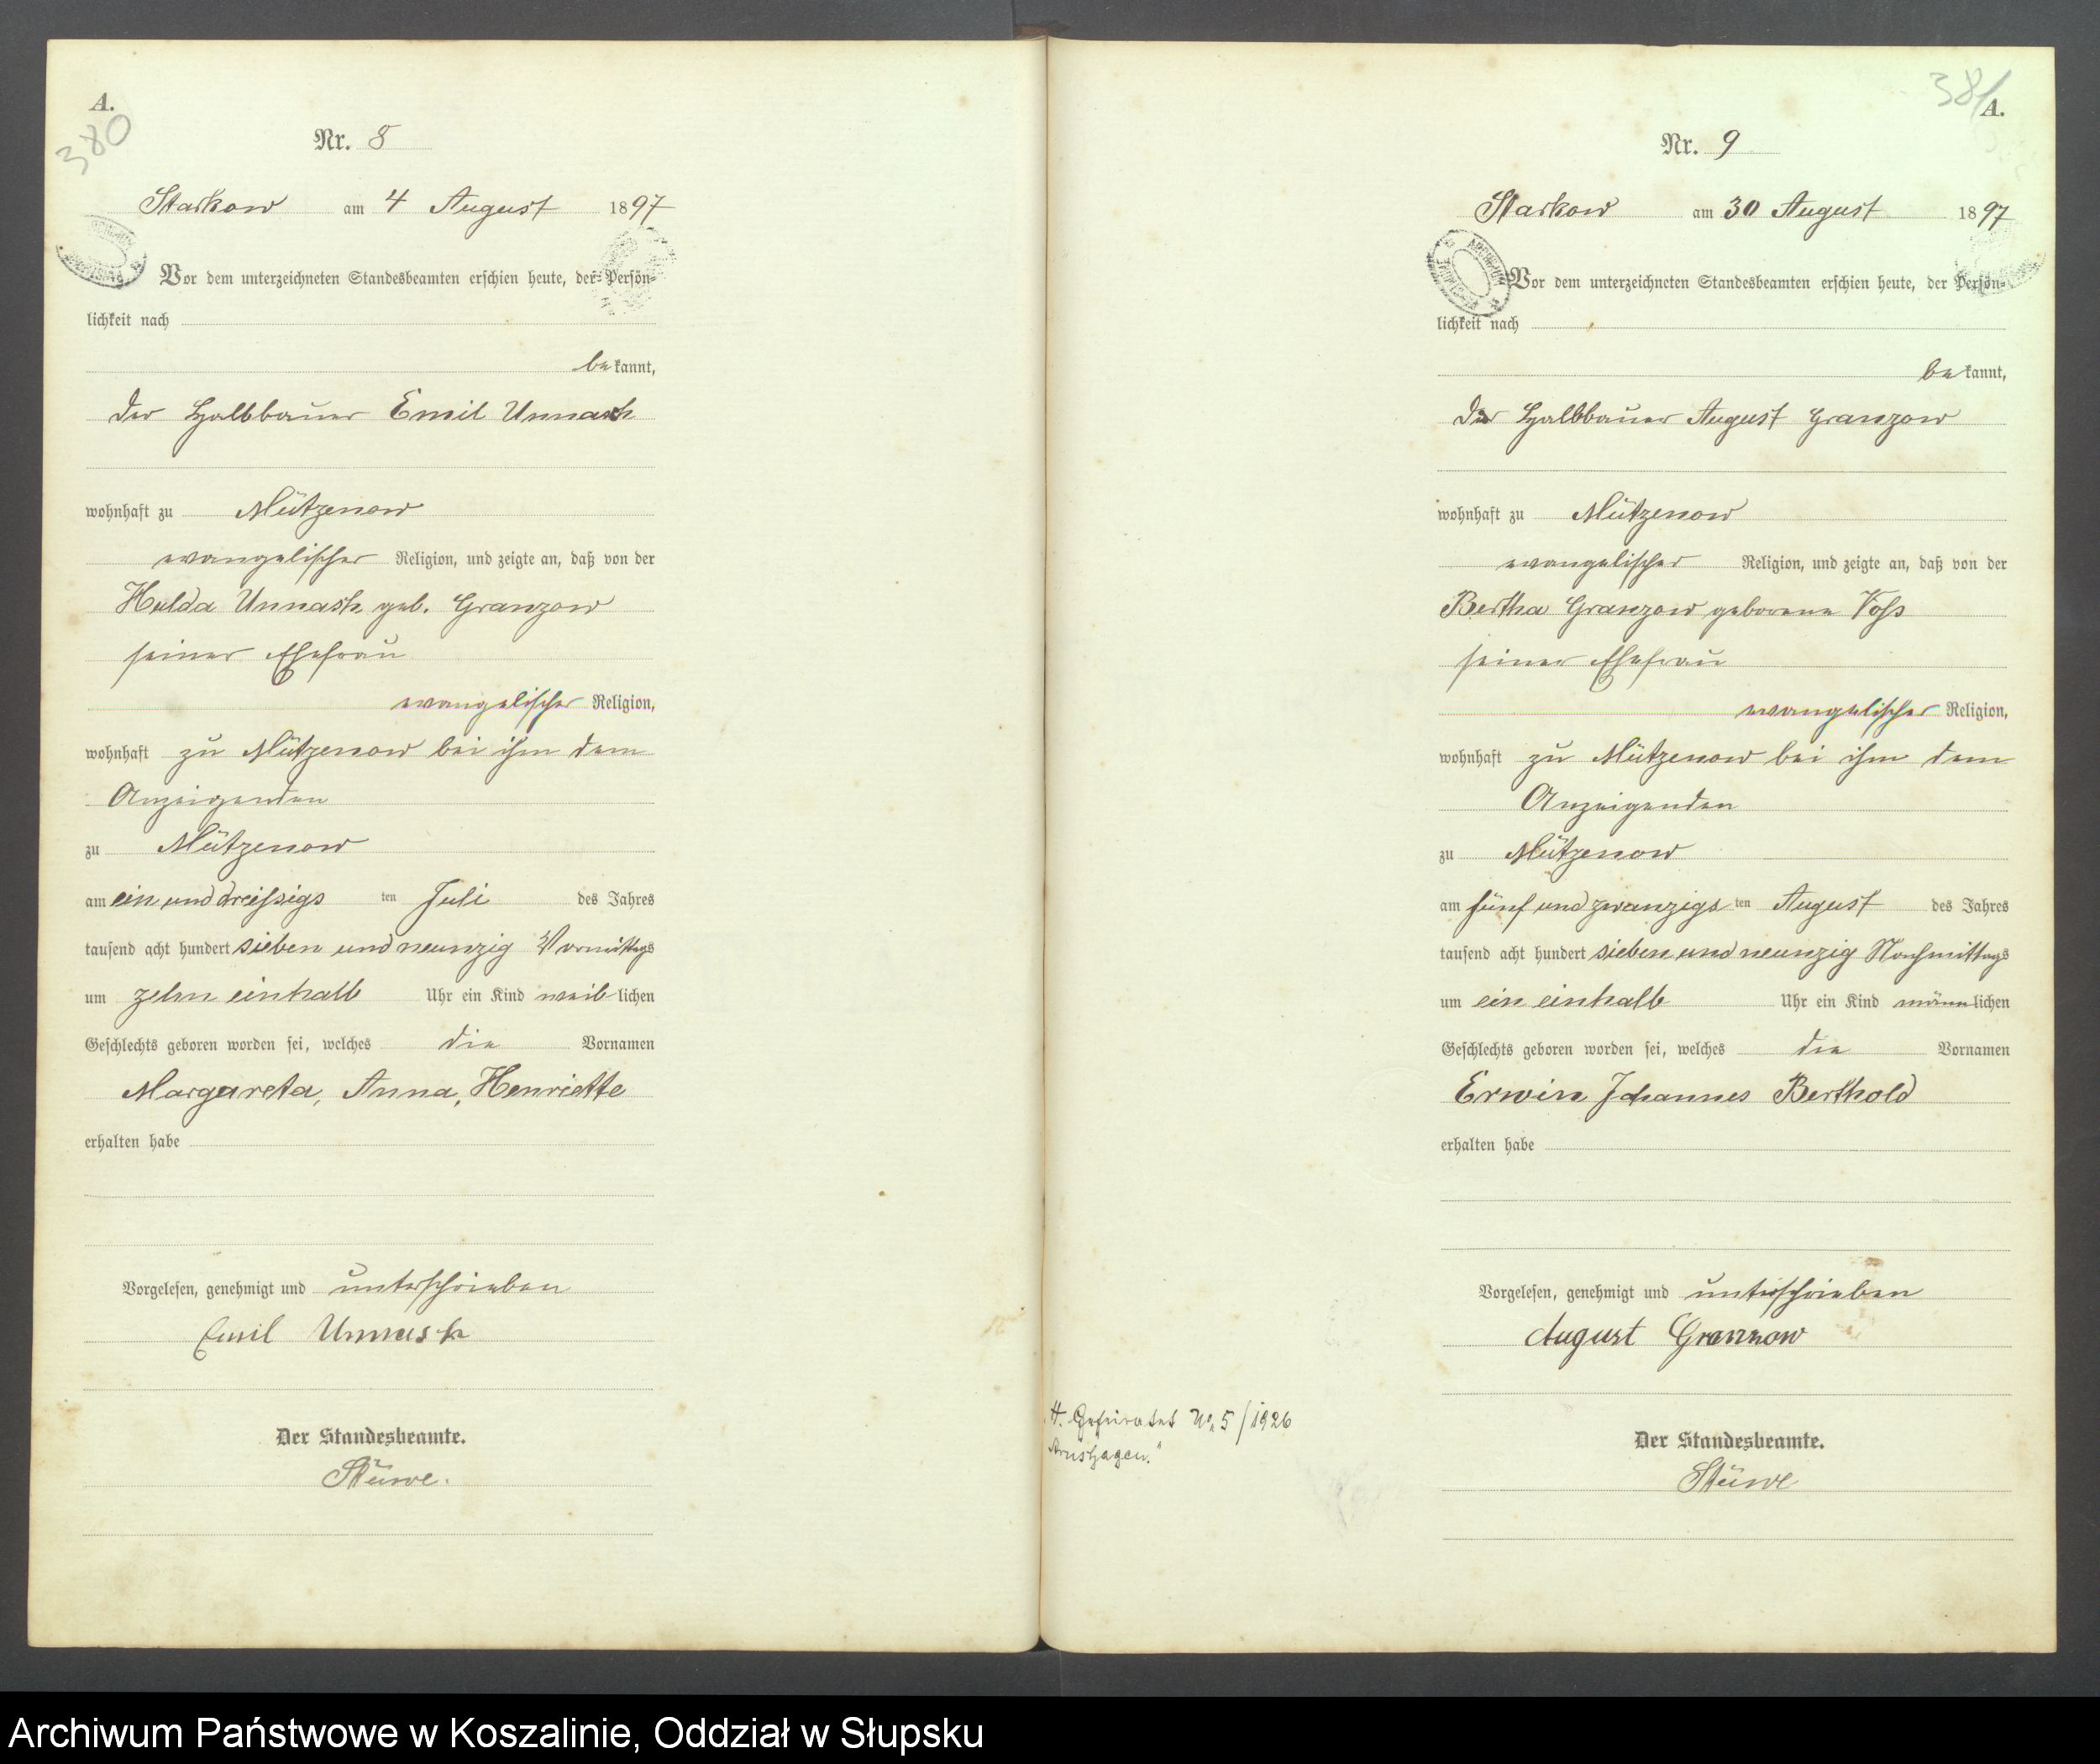 A.
380
Nr. 8
Starkow am 4 August 1897
Vor dem unterzeichneten Standesbeamten erschien heute, der Persön-
lichkeit nach
bekannt,
der Halbbauer Emil Unnasch
wohnhaft zu Mützenow
evangelischer Religion, und zeigte an, daß von der
Hulda Unnasch geb. Granzow
seiner Ehefrau
evangelischer Religion,
wohnhaft zu Mützenow bei ihm dem
Anzeigenden
zu Mützenow
am ein und dreissigs ten Juli des Jahres
tausend acht hundert sieben und neunzig Vormittags
um zehn einhalb Uhr ein Kind weiblichen
Geschlechts geboren worden sei, welches die Vornamen
Margareta, Anna, Henriette
erhalten habe
Vorgelesen, genehmigt und unterschrieben
Emil Unnasch
Der Standesbeamte.
Stüwe.
381
A.
Nr. 9
Starkow am 30 August 1897
Vor dem unterzeichneten Standesbeamten erschien heute, der Persön-
lichkeit nach
bekannt,
der Halbbauer August Granzow
wohnhaft zu Mützenow
evangelischer Religion, und zeigte an, daß von der
Bertha Granzow geborene Voß
seiner Ehefrau
evangelischer Religion,
wohnhaft zu Mützenow bei ihm dem
Anzeigenden
zu Mützenow
am fünf und zwanzigs ten August des Jahres
tausend acht hundert sieben und neunzig Nachmittags
um ein einhalb Uhr ein Kind männlichen
Geschlechts geboren worden sei, welches die Vornamen
Erwin Johannes Berthold
erhalten habe
Vorgelesen, genehmigt und unterschrieben
August Granzow
Der Standesbeamte.
Stüwe
H. Geheiratet No 5/1926
Arnshagen."
Archiwum Państwowe w Koszalinie, Oddział w Słupsku